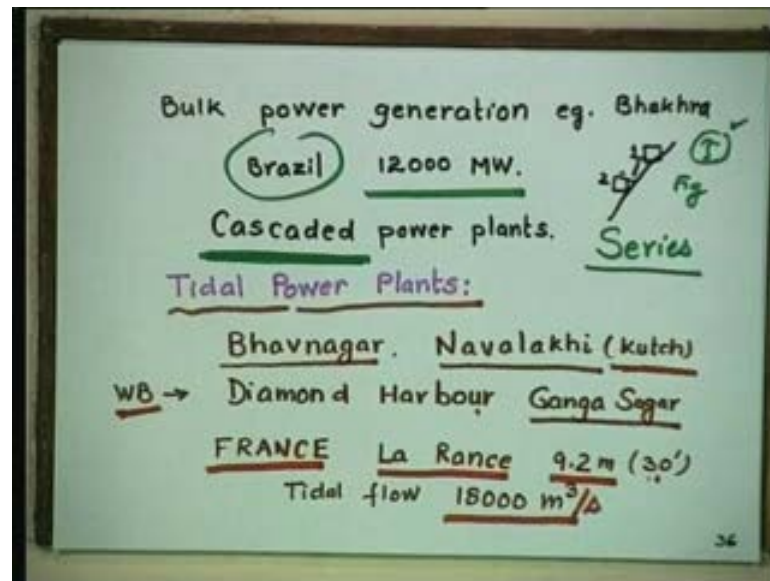 Bulk power generation eg. Bhakhra
Brazil 12000 MW.
1 I
2 Fig
Cascaded power plants.
Series
Tidal Power Plants:
Bhavnagar. Navalakhi (Kutch)
WB → Diamond Harbour Ganga Sagar
FRANCE La Rance 9.2 m (30')
Tidal flow 18000 m³/s
36